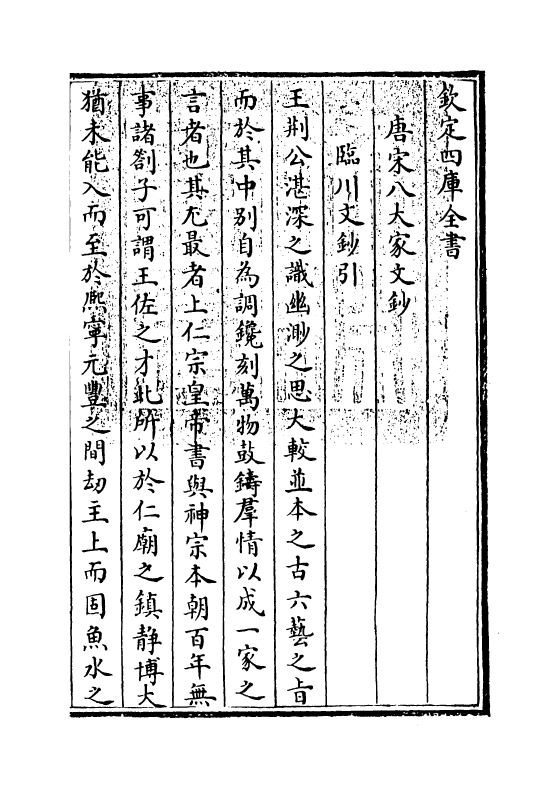 欽定四庫全書
唐宋八大家文鈔
臨川文鈔引
王荆公湛深之識幽渺之思大較並本之古六藝之旨
而於其中别自為調鑱刻萬物鼓鑄羣情以成一家之
言者也其尤最者上仁宗皇帝書與神宗本朝百年無
事諸劄子可謂王佐之才此所以於仁廟之鎮静博大
猶未能入而至於熈寧元豐之間刼主上而固魚水之